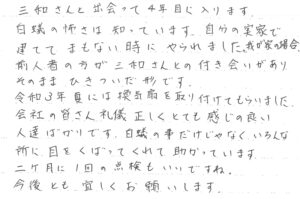 三和さんと出会って4年目に入ります。
白蟻の怖さは知っています。自分の実家で
建ててまもない時にやられました。我が家の場合、
前人者の方が三和さんとの付き会いがあり
そのままひきついだ形です。
令和3年夏には換気扇を取り付けてもらいました。
会社の皆さん礼儀正しくとても感じの良い
人達ばかりです。白蟻の事だけじゃなくいろんな
所に目をくばってくれて助かっています。
二ヶ月に1回の点検もいいですね。
今後とも宜しくお願いします。